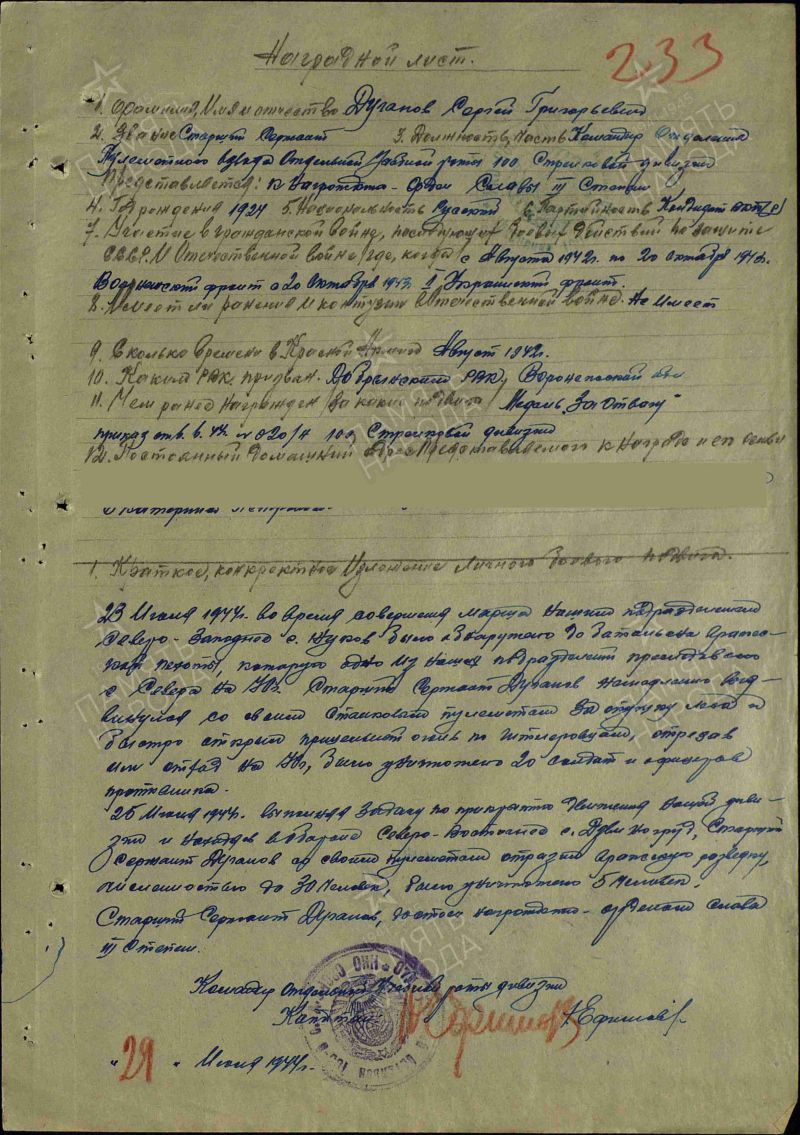 Наградной лист.
233
1. Фамилия, Имя и отчество Дуганов Сергей Григорьевич
2. Звание Старший Сержант 3. Должность, часть Командир Отделения
Пулеметного взвода Отдельной Учебной роты 100 Стрелковой дивизии
Представляется: к Награждению - Орден Славы III Степени
4. Год рождения 1924 5. Национальность Русский 6. Партийность Кандидат ВКП(б)
7. Участие в гражданской войне, последующих боевых действиях по защите
СССР и Отечественной войне /где, когда/ с Августа 1942г. по 20 октября 1943г.
Воронежский фронт с 20 октября 1943 I Украинский фронт.
8. Имеет ли ранения и контузии в Отечественной войне. Не имеет
9. Сколько времени в Красной Армии Август 1942г.
10. Каким РВК призван. Добринским РВК, Воронежской обл
11. Чем ранее награжден /за какие подвиги Медаль "За Отвагу"
приказ от 6.6.44. № 020/н 100 Стрелковой дивизии
12. Постоянный домашний адрес Представляемого к Награде и его семьи
1. Краткое, конкретное изложение личного боевого подвига.
23 Июля 1944г. во время совершения марша нашим подразделением
Северо-Западнее с. Жуков было обнаружено до батальона вражес-
кой пехоты, которую одно из наших подразделений преследовало
с Севера на Юг. Старший Сержант Дуганов немедленно выд-
винулся со своим станковым пулеметом за опушку леса и
быстро открыл прицельный огонь по гитлеровцам, отрезав
им отход на Юг, было уничтожено 20 солдат и офицеров
противника.
26 Июля 1944г. выполняя задачу по прикрытию движения нашей диви-
зии и находясь в обороне Северо-Восточнее с. Старший
Сержант Дуганов со своим пулеметом отразил вражескую разведку,
численностью до 30 человек, было уничтожено 5 человек.
Старший Сержант Дуганов, достоин награждения - орденом Слава
III Степени.
Командир отдельной Учебной роты дивизии
Капитан Ефимов
"29" Июля 1944г.
ПАМЯТЬ НАРОДА